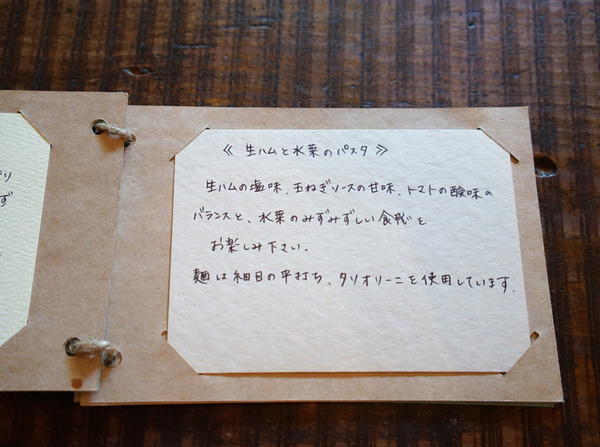 《 生ハムと水菜のパスタ 》
生ハムの塩味、玉ねぎソースの甘味、トマトの酸味の
バランスと、水菜のみずみずしい食感を
お楽しみ下さい.
麺は細目の平打ち、タリオリーニを使用しています.